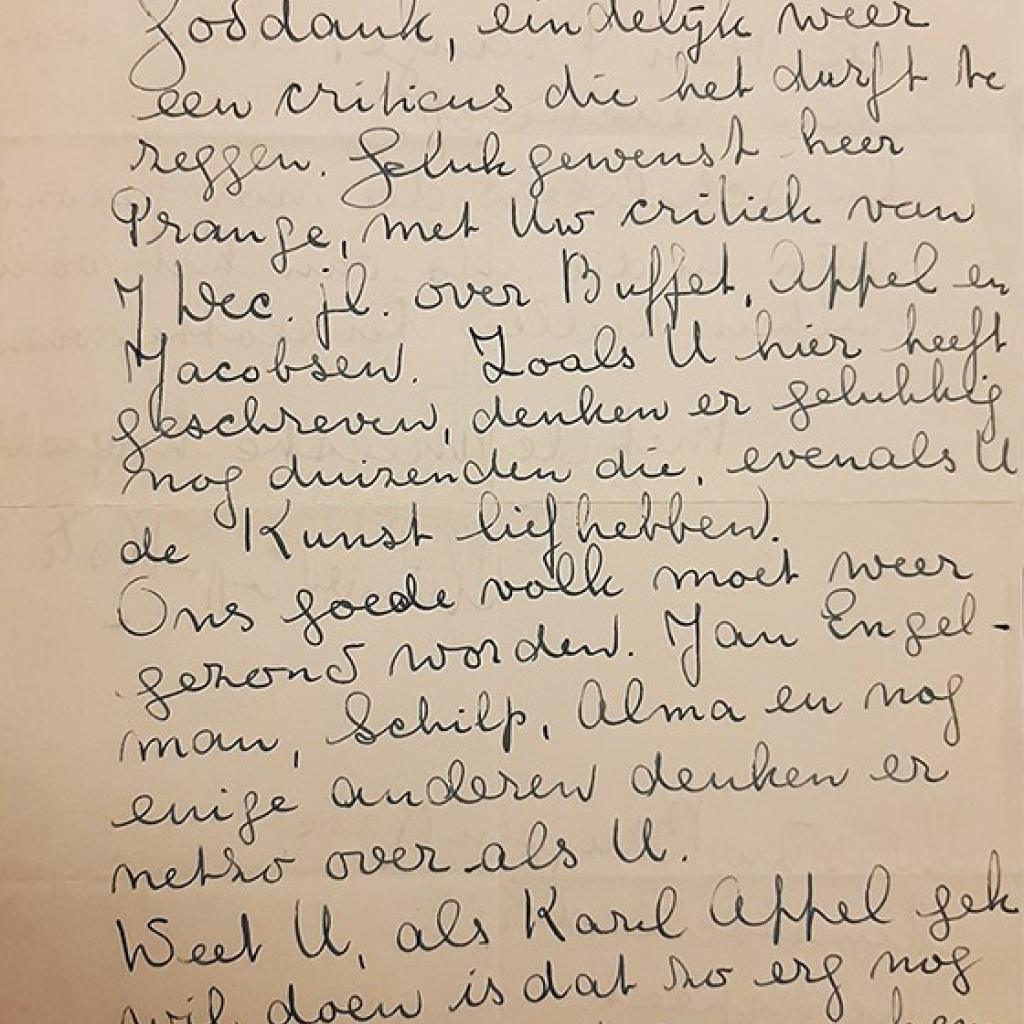 Goddank, eindelijk weer
een criticus die het durft te
zeggen. Gelukgewenst heer
Prange, met Uw critiek van
7 Dec. jl. over Buffet, Appel en
Jacobsen. Zoals U hier heeft
geschreven, denken er gelukkig
nog duizenden die, evenals U
de Kunst liefhebben.
Ons goede volk moet weer
gezond worden. Jan Engel-
man, Schilp, Alma en nog
enige anderen denken er
netzo over als U.
Weet U, als Karel Appel gek
wil doen is dat zo erg nog